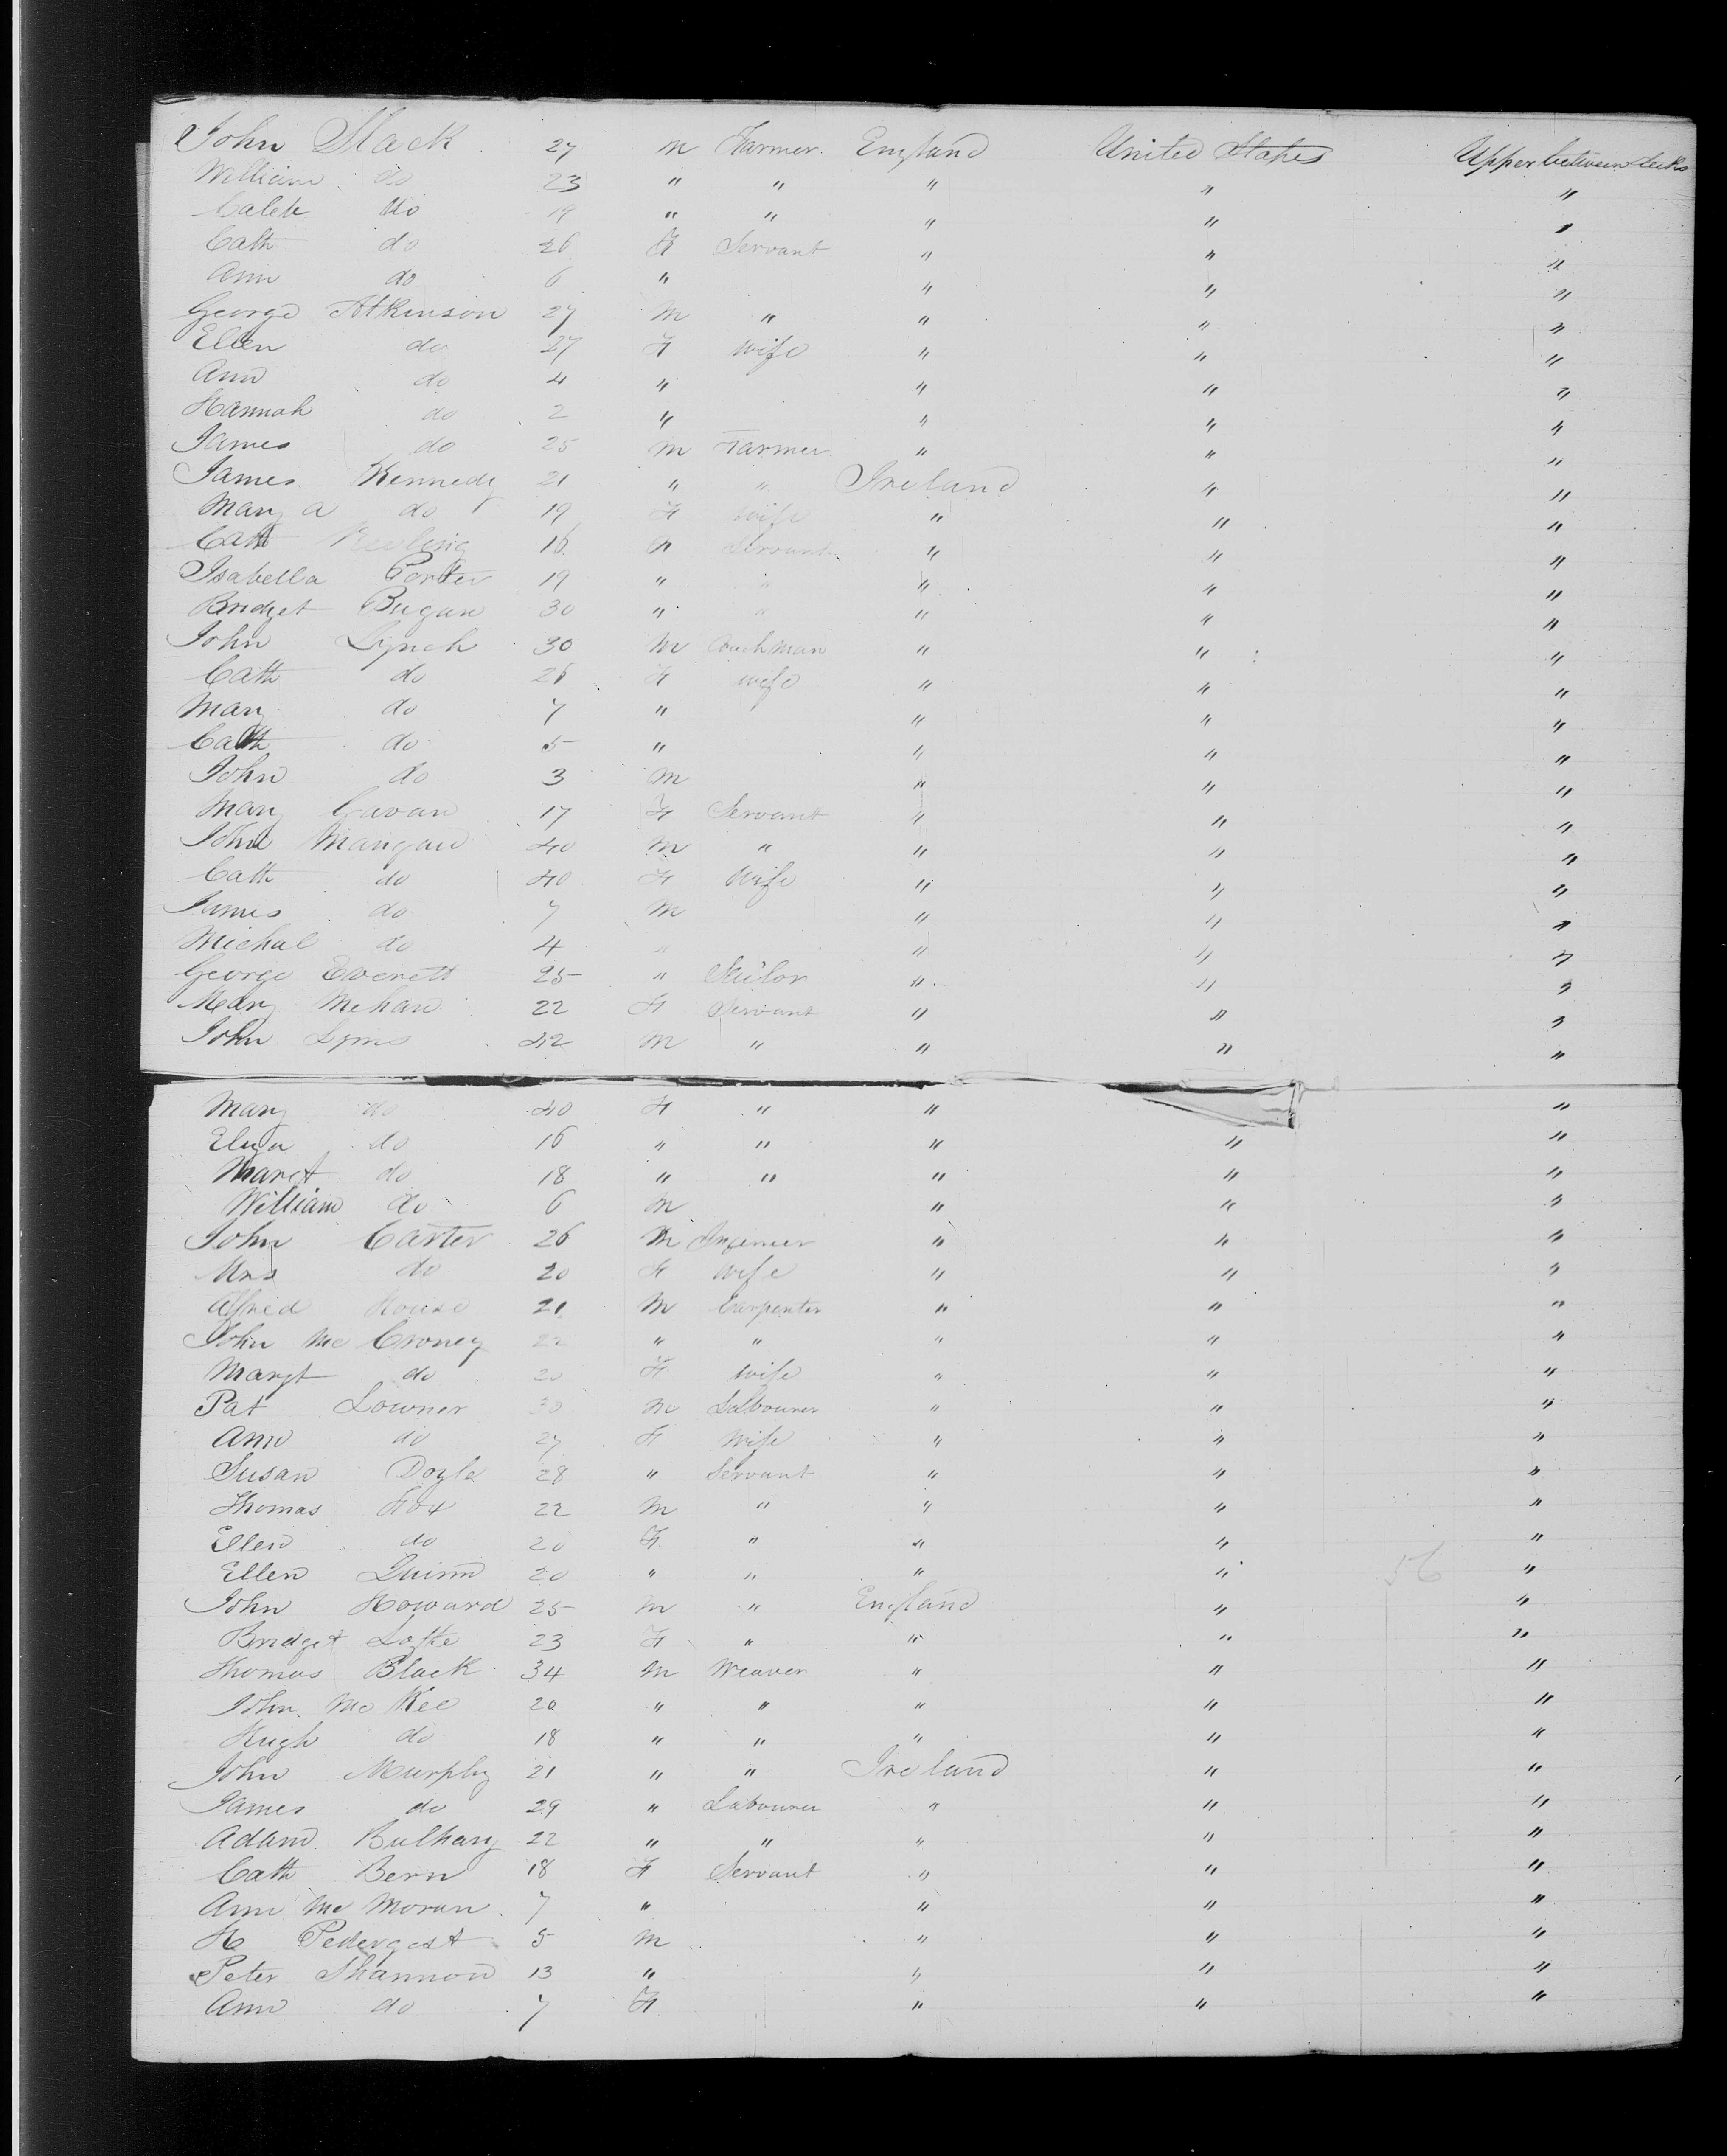 John Slack 27 M Farmer England United States Upper between decks
William do 23 " " " " "
Caleb do 19 " " " " "
Cath do 26 F Servant " " "
Ann do 6 " " " "
George Atkinson 27 M " " " "
Ellen do 27 F Wife " " "
Ann do 4 " " " "
Hannah do 2 " " " "
James do 25 M Farmer " " "
James Kennedy 21 " " Ireland " "
Mary a do 19 F Wife " " "
Cath 16 F Servant " " "
Isabella Porter 19 " " " " "
Bridget Bugan 30 " " " " "
John Lynch 30 M Coachman " " "
Cath do 26 F Wife " " "
Mary do 7 " " " "
Cath do 5 " " " "
John do 3 M " " "
Mary Cavan 17 F Servant " " "
John Mangan 40 M " " " "
Cath do 40 F Wife " " "
James do 7 M " " "
Michal do 4 " " " "
George Everett 25 " Sailor " " "
Mary Mehan 22 F Servant " " "
John Lyms 42 M " " " "
Mary do 40 F " " "
Eliza do 16 " " " " "
Maret do 18 " " " " "
William do 6 M " " "
John Carter 26 M " " "
Mrs do 20 F Wife " " "
Alfred House 21 M Carpenter " " "
John Mc Croney 22 " " " " "
Margt do 20 F Wife " " "
Pat Lowner 30 M Labourer " " "
Ann do 27 F Wife " " "
Susan Doyle 28 " Servant " " "
Thomas Fox 22 M " " " "
Ellen do 20 F " " " "
Ellen Quinn 20 " " " " 56 "
John Howard 25 M " England " "
Bridget Lofte 23 F " " " "
Thomas Black 34 M Weaver " " "
John Mc Kee 20 " " " " "
Hugh do 18 " " " " "
John Murphy 21 " " Ireland " "
James do 29 " Labourer " " "
Adam Bulhany 22 " " " " "
Cath Bern 18 F Servant " " "
Ann Mc Moran 7 " " " "
H Pedergast 5 M " " "
Peter Shannon 13 " " " "
Ann do 7 F " " "